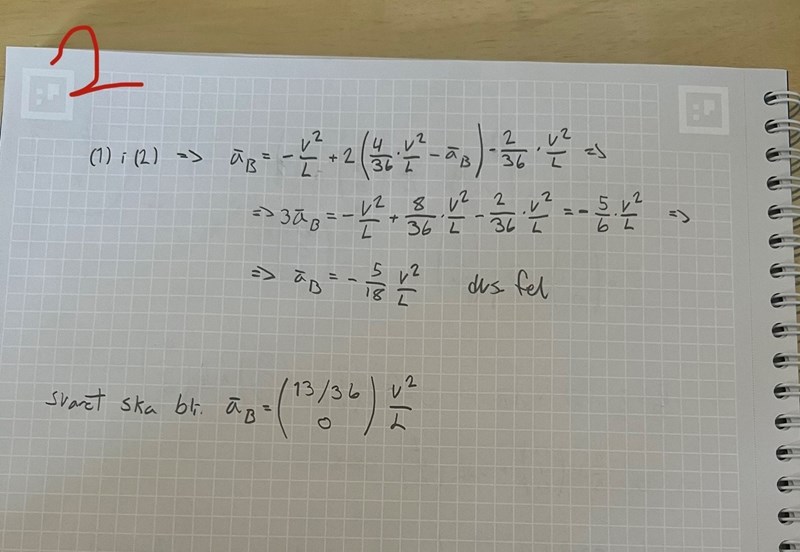 2
(1) i (2) => ā_B = - v²/L + 2(4/36 · v²/L - ā_B) - 2/36 · v²/L =>
=> 3ā_B = - v²/L + 8/36 · v²/L - 2/36 · v²/L = - 5/6 · v²/L =>
=> ā_B = - 5/18 v²/L dvs fel
svaret ska bli ā_B = (13/36 0) v²/L